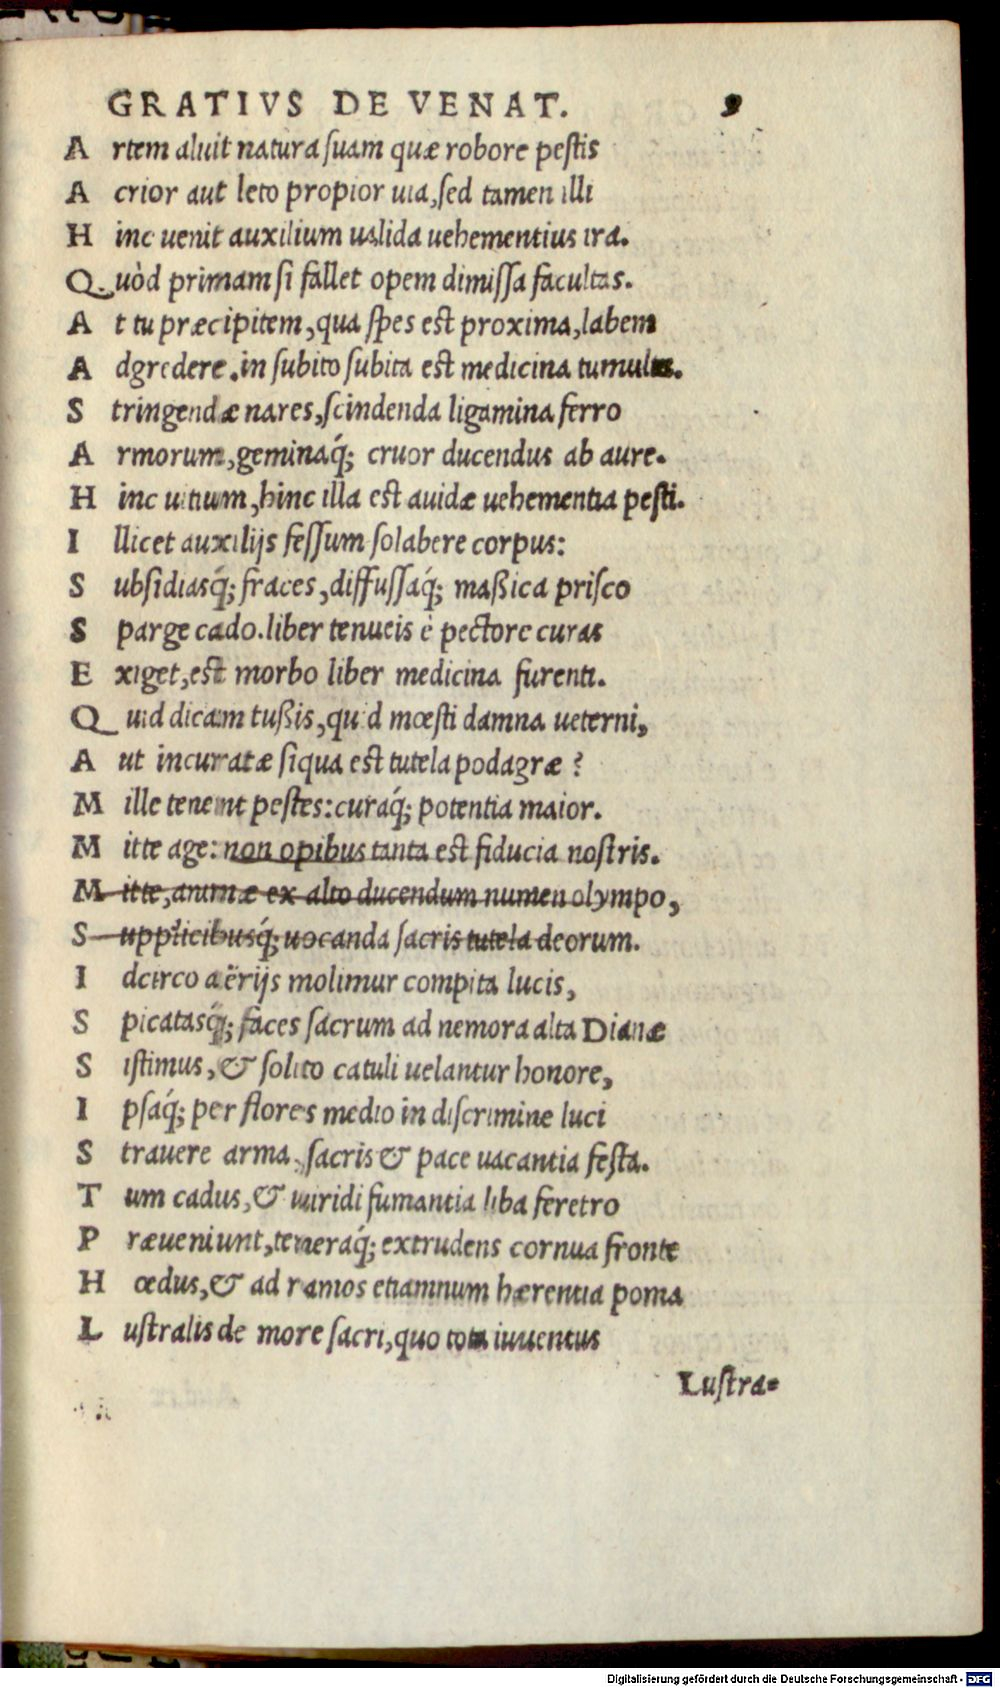 GRATIVS DE VENAT. 9
A rtem aluit natura ſuam quæ robore peſtis
A crior aut leto propior uia,ſed tamen illi
H inc uenit auxilium ualida uehementius ira.
Q uòd primam ſi fallet opem dimiſſa facultas.
A t tu præcipitem,qua ſpes est proxima,labem
A dgredere.in ſubito ſubita est medicina tumultu.
S tringendæ nares,ſcindenda ligamina ferro
A rmorum,geminaq́; cruor ducendus ab aure.
H inc uitium,hinc illa est auidæ uehementia peſti.
I llicet auxilijs feſſum ſolabere corpus:
S ubſidiasq́; fraces,diffuſſaq́; maßica priſco
S parge cado.liber tenueis è pectore curas
E xiget,est morbo liber medicina furenti.
Q uid dicam tußis,quid mœſti damna ueterni,
A ut incuratæ ſiqua est tutela podagræ ?
M ille tenent peſtes:curaq́; potentia maior.
M itte age: non opibus tanta est fiducia noſtris.
M itte,animæ ex alto ducendum numen olympo,
S upplicibusq́; uocanda ſacris tutela deorum.
I dcirco aërijs molimur compita lucis,
S picatasq́; faces ſacrum ad nemora alta Dianæ
S iſtimus,& ſolito catuli uelantur honore,
I pſaq́; per flores medio in diſcrimine luci
S trauere arma, ſacris & pace uacantia feſta.
T um cadus,& uiridi fumantia liba feretro
P ræueniunt,teneraq́; extrudens cornua fronte
H œdus,& ad ramos etiamnum hærentia poma
L uſtralis de more ſacri,quo tota iuuentus
Luſtra-
Digitalisierung gefördert durch die Deutsche Forschungsgemeinschaft - DFG